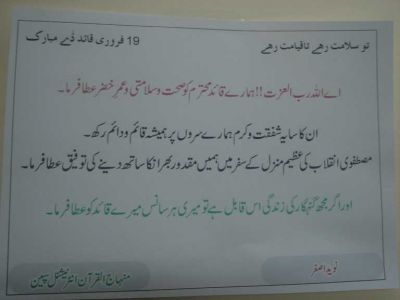 تو سلامت رھے تا قیامت رھے
19 فروری قائد ڈے مبارک
اے اللہ رب العزت!! ہمارے قائد محترم کو صحت و سلامتی و عمرِ خضر عطا فرما۔
ان کا سایہ شفقت و کرم ہمارے سروں پر ہمیشہ قائم و دائم رکھ۔
مصطفوی انقلاب کی عظیم منزل کے سفر میں ہمیں مقدور بھر انکا ساتھ دینے کی توفیق عطا فرما۔
اور اگر مجھ گنہگار کی زندگی اس قابل ہے تو میری ہر سانس میرے قائد کو عطا فرما۔
نوید اصغر
منہاج القرآن انٹرنیشنل سپین